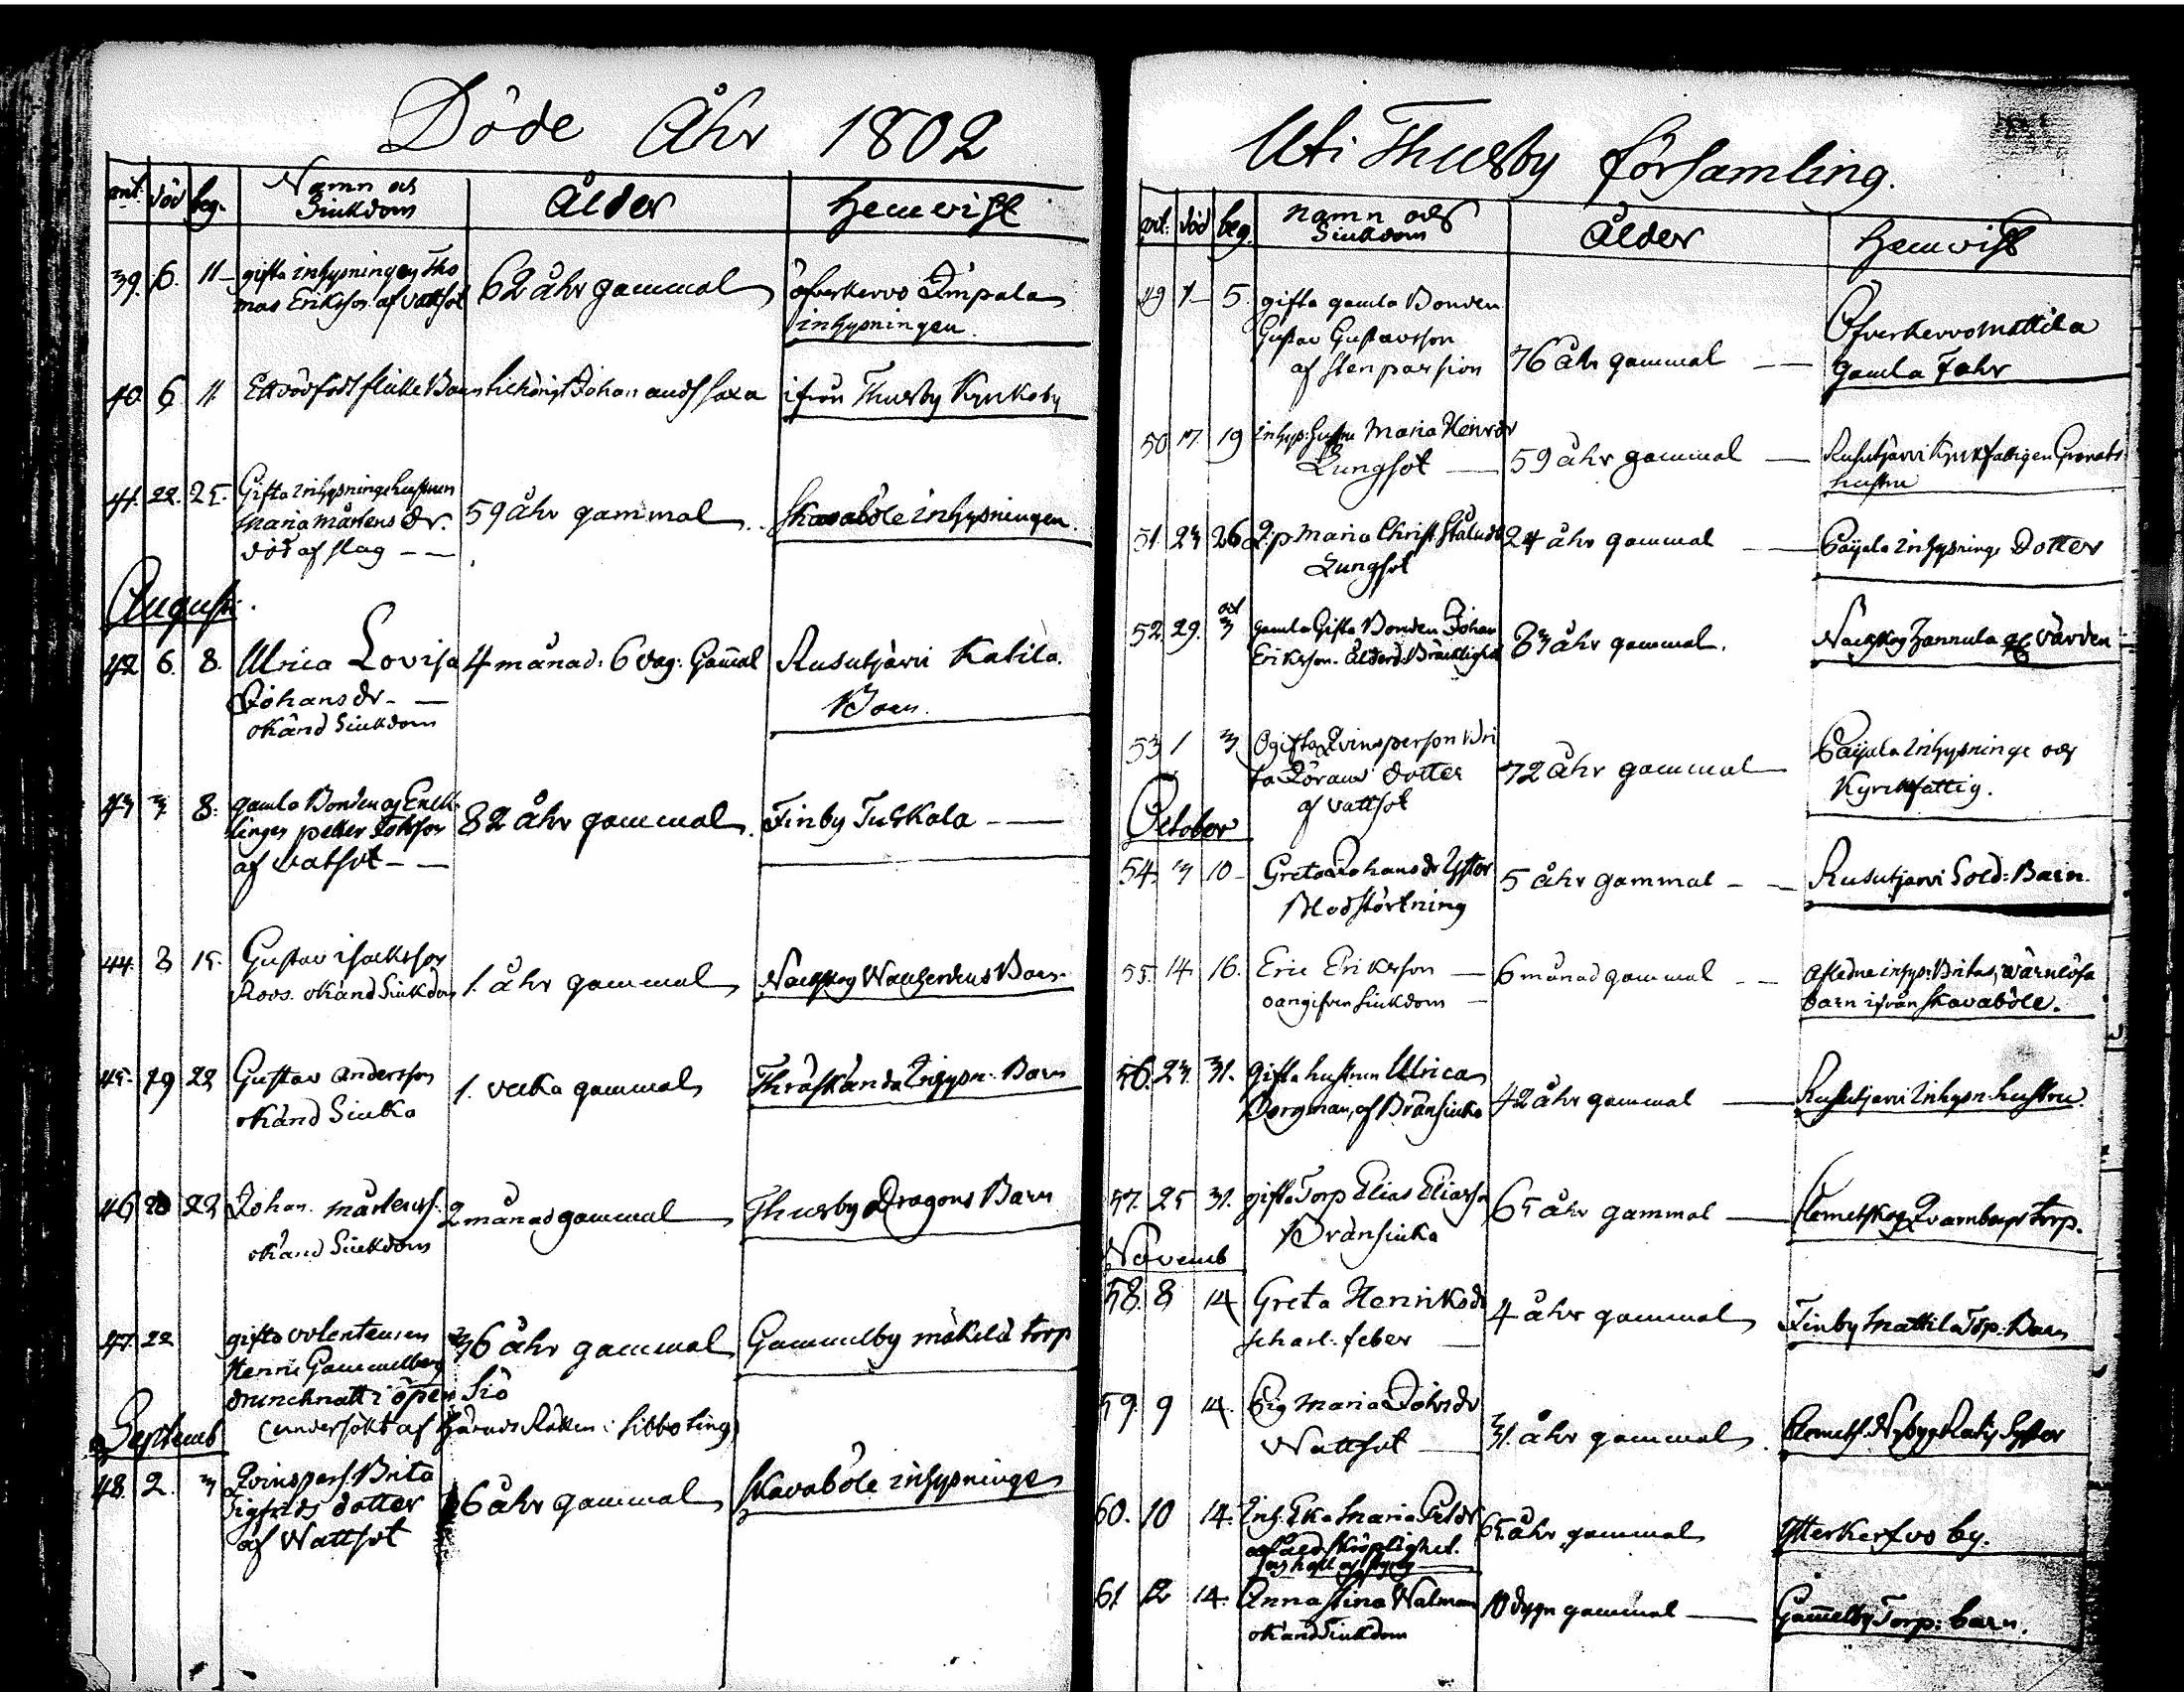 Döde Åhr 1802
ant. död beg. Namn och Siukdom Ålder Hemvist
39. 6. 11 gifta inhysningen Tho 62 åhr gammal öfverkervo Impala
mas Eriksson af vattsot inhysningen.
40. 6 11 Ett dödfödt flicke Barn Johan ifrån Thusby Kyrkoby
41. 22. 25. Gifta inhysningshustrun
Maria Mårtens dr. 59 åhr gammal Skavaböle inhysningen.
död af slag
Augusti.
42 6. 8. Ulrica Lovisa 4 månad: 6 dag: Gam̄al Rusutjärvi Katila
Johans dr. Barn.
okänd Siukdom
43 3. 8. gamla Bonden
petter 82 åhr gammal Finby Tuskala
af vatsot
44. 8 15. Gustav isacksson
Roos. okänd Siukdom 1. åhr gammal Barn
45. 19 22 Gustav andersson 1. vecka gammal Thräskända Inhysn. Barn
okänd Siuka
46 20 22 Johan mårtenss. 2 månad gammal Thusby Dragons Barn
okänd Siukdom
47. 22 gifta volenteuren 36 åhr gammal Gammelby mäkelä torp
Henric Gammelberg
drunchnatt i öpen Siö
(undersökt af Härads Rätten i Sibbo ting)
Septemb
48. 2. 3 Qvinspers. Brita
Sigfrids dotter 6 åhr gammal Skavaböle inhysninge
af Wattsot
Uti Thusby församling.
ant. död beg. namn och Siukdom Ålder Hemvist
49 1 5. gifta gamla Bonden
Gustav Gustavsson Öfverkervo Mattila
af stenpassion 76 åhr gammal gamla Fahr
50 17. 19 inhys: hustru Maria Henr dr
Lungsot 59 åhr gammal Rusutjärvi Kyrkfattigen
hustru
51 23 26 Maria Christ. 24 åhr gammal inhysnings Dotter
Lungsot
52 29. oct 3 gamla Gifta Bonden Johan
Eriksson. Ålderd: Bräcklighet 83 åhr gammal. värden
53 1 3 Ogifta Qvinsperson Bri
ta Jörans dotter 72 åhr gammal inhysninge och
af vattsot Kyrkfattig.
October
54. 3 10 Greta Johans dr Yster 5 åhr gammal Rusutjervi Sold: Barn.
Blodstörtning
55. 14 16. Eric Eriksson 6 månad gammal afledne inhys: Britas, värnlösa
oangifven siukdom barn ifrån Skavaböle.
56. 23. 31. gifta hustrun Ulrica
Bergman, af Bränsiuka 42 åhr gammal Rusutjervi Inhysn. hustru.
57. 25 31. gifta Torp Elias Eliasson 65 åhr gammal Qvarnbergs torp.
Bränsiuka
Novemb
58. 8 14 Greta Henriksdr 4 åhr gammal Finby Mattila Torp: Barn
scharl. feber
59. 9 14. Pig Maria Johsdr 31. åhr gammal Syster
Wattsot
60. 10 14. Inh. Maria Petdr 65 åhr gammal Ytterkerfvo by.
61 12 14. Anna Stina Walman 10 dygn gammal Gam̄elby Torp: barn.
okänd Siukdom